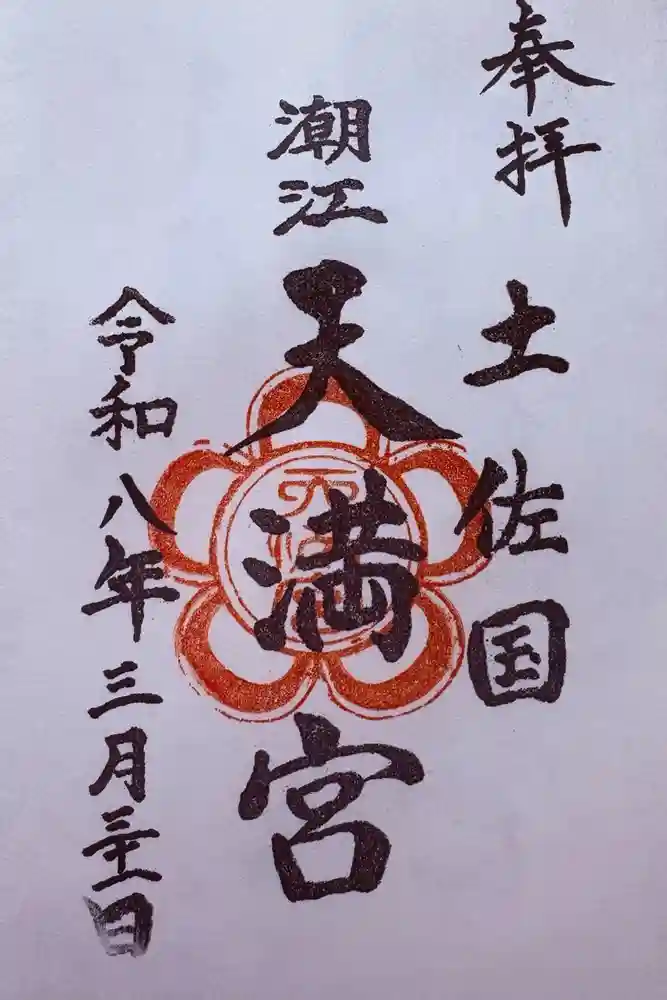 奉拝
土佐国
潮江
天満宮
令和八年三月三十一日